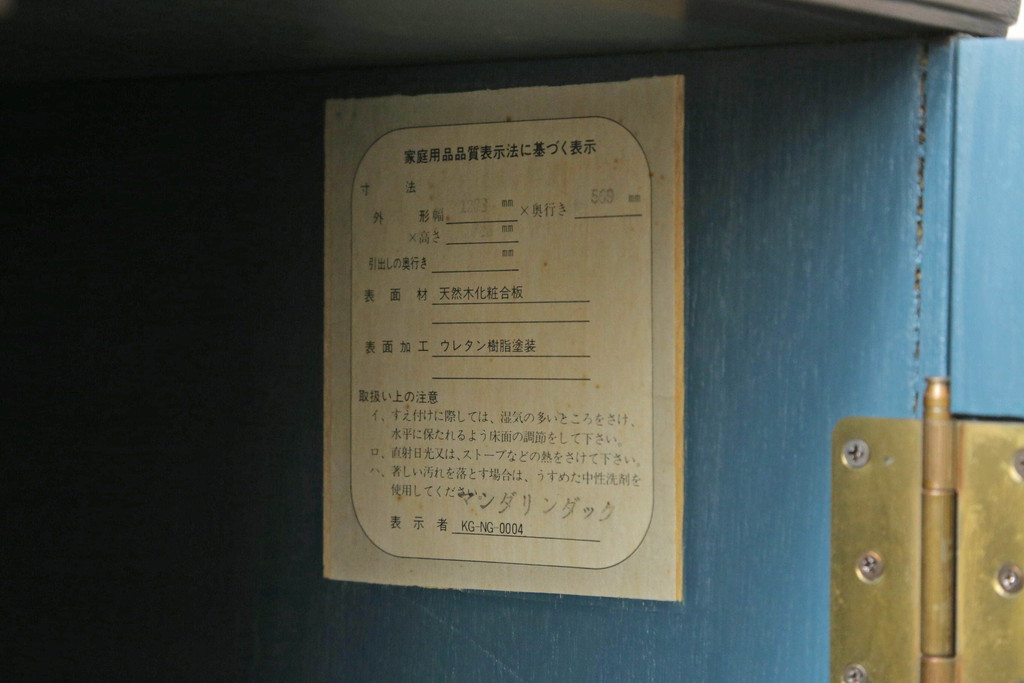 家庭用品品質表示法に基づく表示
寸 法
外 形幅 mm ×奥行き mm
×高さ mm
引出しの奥行き mm
表 面 材 天然木化粧合板
表 面 加 工 ウレタン樹脂塗装
取扱い上の注意
イ、すえ付けに際しては、湿気の多いところをさけ、
水平に保たれるよう床面の調節をして下さい。
ロ、直射日光又は、ストーブなどの熱をさけて下さい。
ハ、著しい汚れを落とす場合は、うすめた中性洗剤を
使用してくださ
マンダリンダック
表 示 者 KG-NG-0004